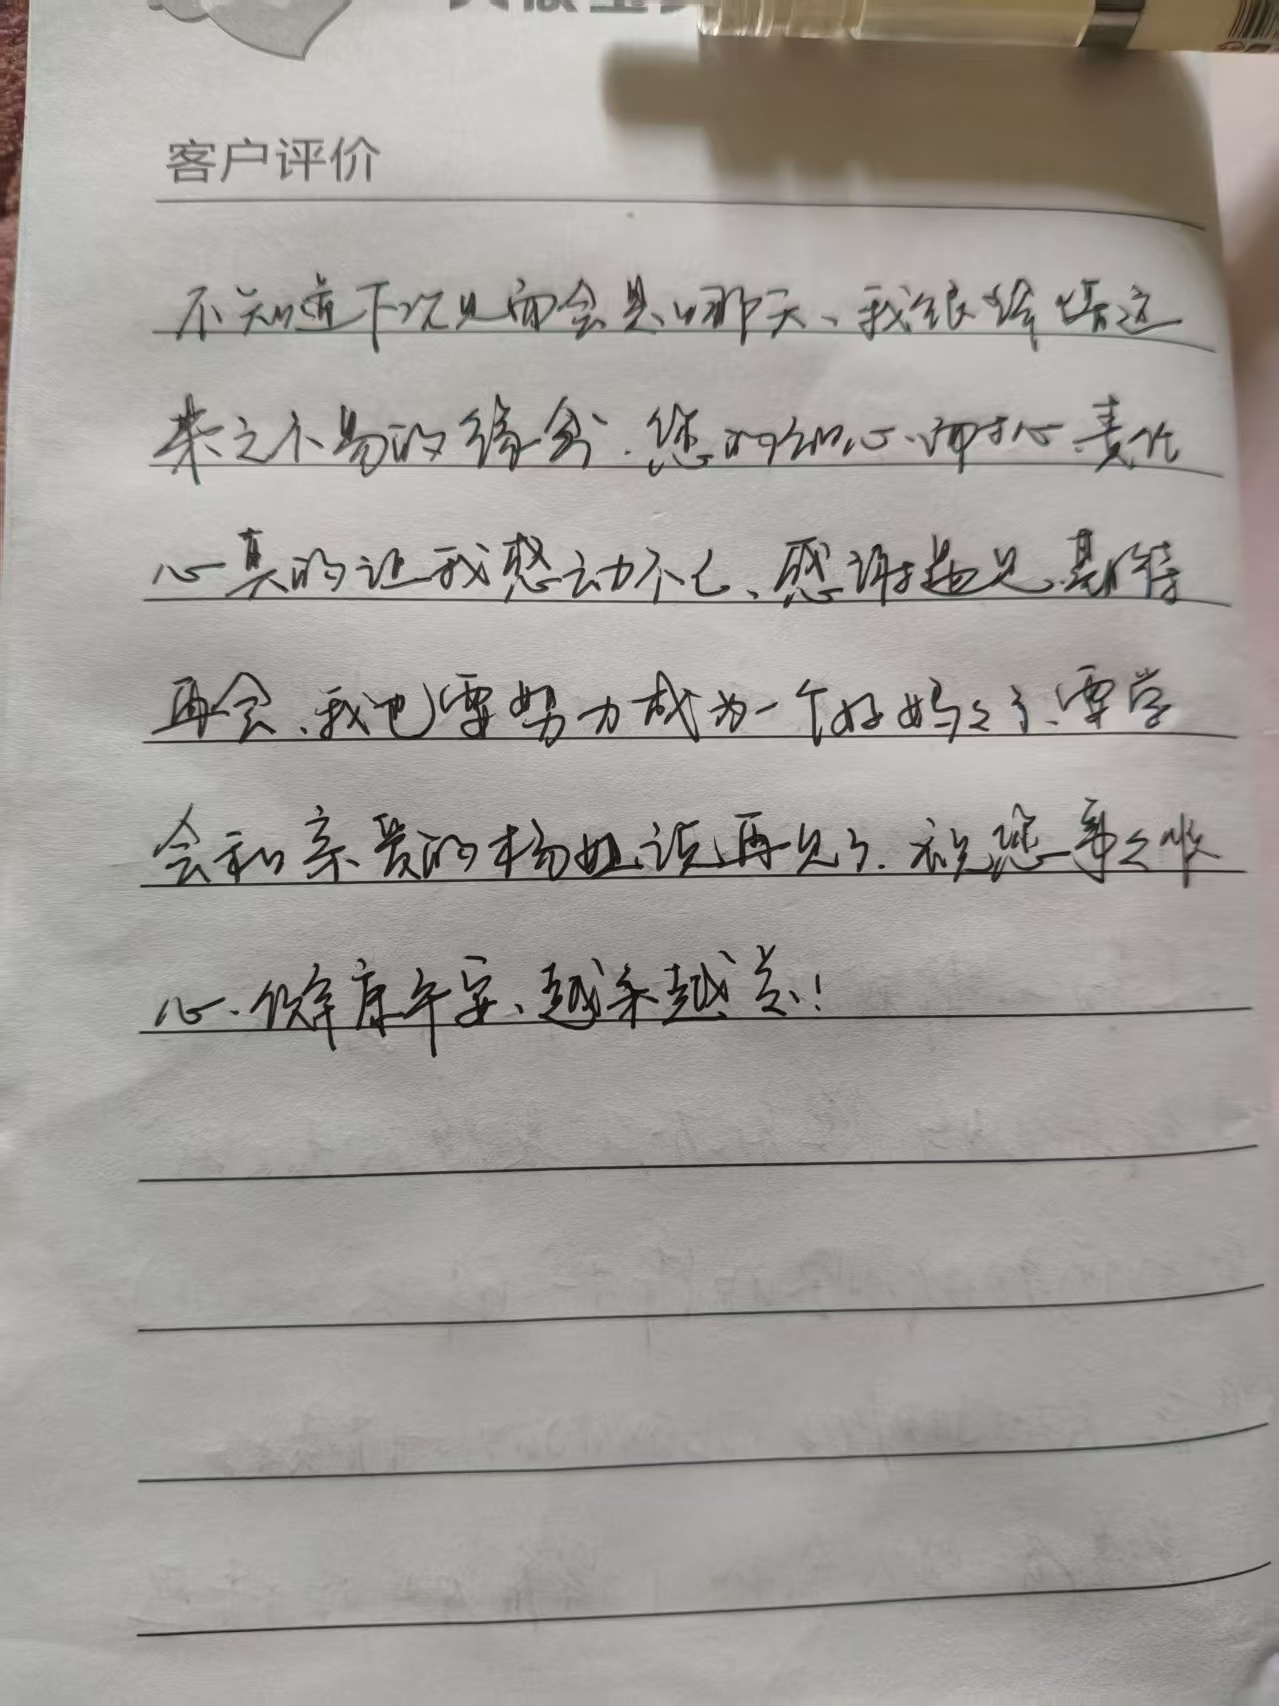 客户评价
不知道下次见面会是哪天、我很珍惜这
来之不易的缘分.您的细心、耐心、责任
心真的让我感动不已、感谢遇见.期待
再会、我也要努力成为一个好妈妈了、要学
会和亲爱的杨姐说再见了.祝您事事顺
心、健康平安、越来越美!